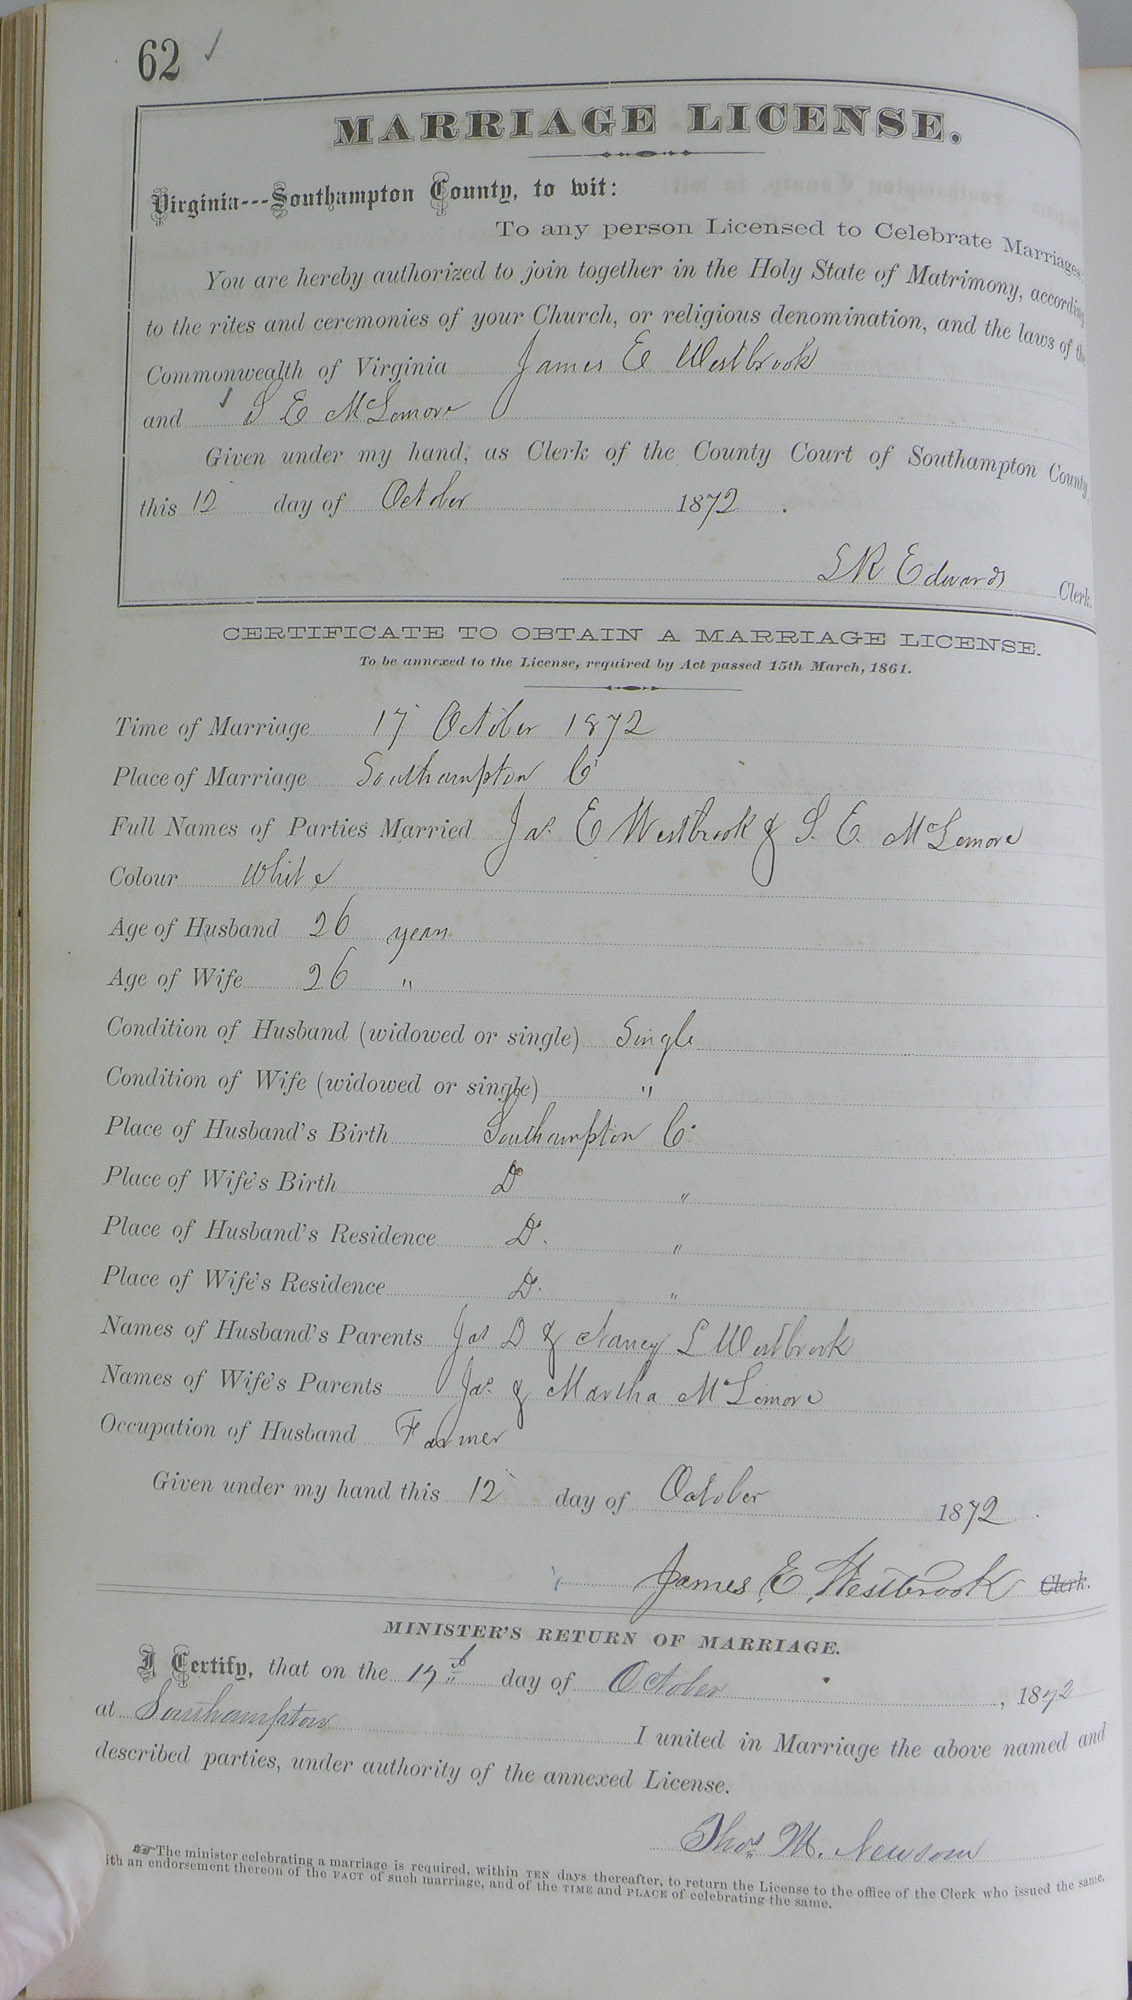 62 ✓
MARRIAGE LICENSE.
Virginia---Southampton County, to wit:
To any person Licensed to Celebrate Marriages:
You are hereby authorized to join together in the Holy State of Matrimony, according
to the rites and ceremonies of your Church, or religious denomination, and the laws of the
Commonwealth of Virginia James E Westbrook
and S E McLemore
Given under my hand, as Clerk of the County Court of Southampton County
this 12 day of October 1872 .
L R Edwards Clerk.
CERTIFICATE TO OBTAIN A MARRIAGE LICENSE.
To be annexed to the License, required by Act passed 15th March, 1861.
Time of Marriage 17 October 1872
Place of Marriage Southampton Co
Full Names of Parties Married Jas. E Westbrook & S. E. McLemore
Colour White
Age of Husband 26 years
Age of Wife 26 "
Condition of Husband (widowed or single) Single
Condition of Wife (widowed or single) "
Place of Husband's Birth Southampton Co
Place of Wife's Birth Do "
Place of Husband's Residence Do. "
Place of Wife's Residence Do. "
Names of Husband's Parents Jas D & Nancy L Westbrook
Names of Wife's Parents Jas. & Martha McLemore
Occupation of Husband Farmer
Given under my hand this 12 day of October 1872 .
James E, Westbrook Clerk.
MINISTER'S RETURN OF MARRIAGE.
I Certify, that on the 17th day of October , 1872
at Southampton I united in Marriage the above named and
described parties, under authority of the annexed License.
Thos M. Newsom
☞The minister celebrating a marriage is required, within TEN days thereafter, to return the License to the office of the Clerk who issued the same,
ith an endorsement thereon of the FACT of such marriage, and of the TIME and PLACE of celebrating the same.